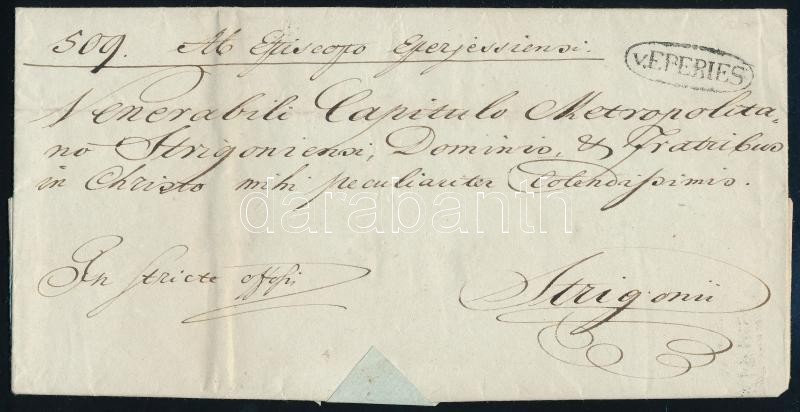 509. Ab Episcopo Eperjessiensi.
v. EPERIES
Venerabili Capitulo Metropolita-
no Strigoniensi, Dominis, & Fratribus
in Christo mihi peculiariter Colendissimis.
darabanth
In stricte offosi
Strigonii